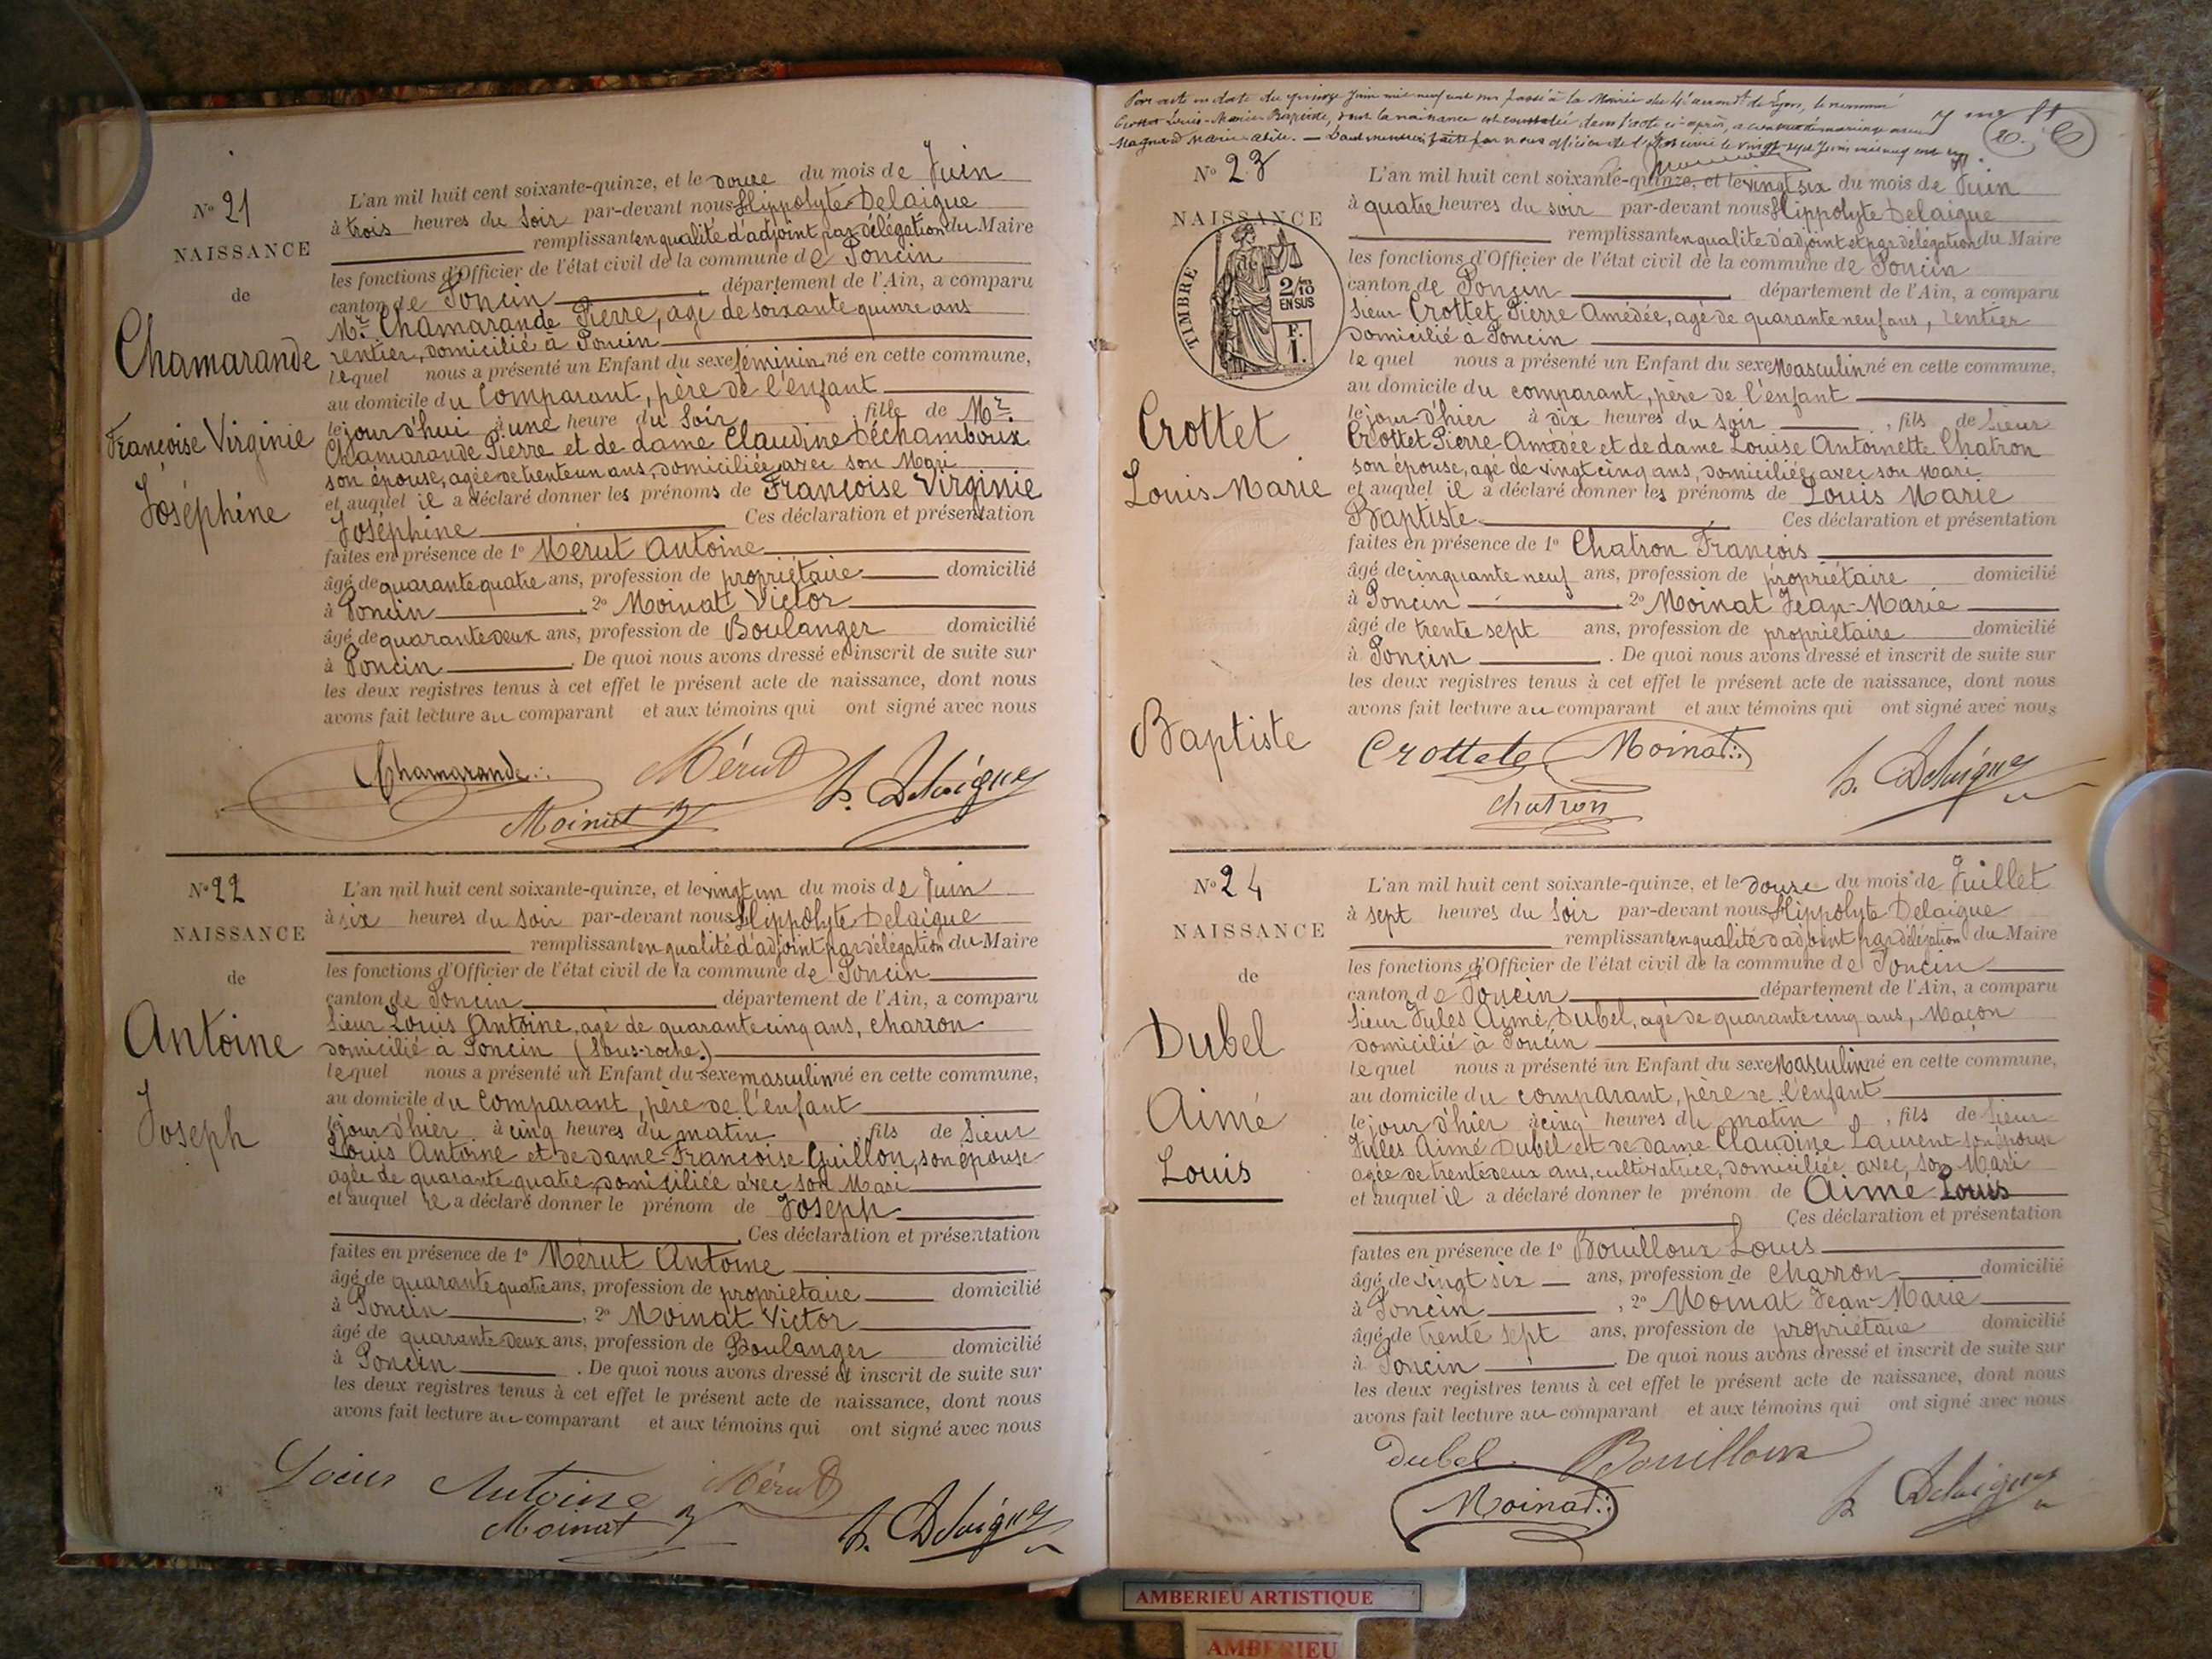 N° 21
NAISSANCE
de
Chamarande
Françoise Virginie
Joséphine
L'an mil huit cent soixante-quinze, et le douze du mois de Juin
à trois heures du soir par-devant nous Hippolyte Delaigue
remplissant en qualité d'adjoint par délégation du Maire
les fonctions d'Officier de l'état civil de la commune de Poncin
canton de Poncin département de l'Ain, a comparu
Mr Chamarande Pierre, agé de soixante quinze ans
rentier, domicilié à Poncin
lequel nous a présenté un Enfant du sexe féminin né en cette commune,
au domicile du Comparant, père de l'enfant
le jour d'hui à une heure du soir, fille de Mr
Chamarande Pierre et de dame Claudine Déchamboux
son épouse, agée de trente un ans, domiciliée avec son Mari
et auquel il a déclaré donner les prénoms de Françoise Virginie
Joséphine Ces déclaration et présentation
faites en présence de 1° Mérut Antoine
âgé de quarante quatre ans, profession de propriétaire domicilié
à Poncin, 2° Moinat Victor
âgé de quarante deux ans, profession de Boulanger domicilié
à Poncin. De quoi nous avons dressé et inscrit de suite sur
les deux registres tenus à cet effet le présent acte de naissance, dont nous
avons fait lecture au comparant et aux témoins qui ont signé avec nous
Chamarande Mérut
Moinat h. Delaigue
N° 22
NAISSANCE
de
Antoine
Joseph
L'an mil huit cent soixante-quinze, et le vingt un du mois de Juin
à six heures du soir par-devant nous Hippolyte Delaigue
remplissant en qualité d'adjoint par délégation du Maire
les fonctions d'Officier de l'état civil de la commune de Poncin
canton de Poncin département de l'Ain, a comparu
Sieur Louis Antoine, agé de quarante cinq ans, charron
domicilié à Poncin (Sous-roche.)
lequel nous a présenté un Enfant du sexe masculin né en cette commune,
au domicile du Comparant, père de l'enfant
le jour d'hier à cinq heures du matin, fils de Sieur
Louis Antoine et de dame Françoise Guillon, son épouse
agée de quarante quatre, domiciliée avec son Mari
et auquel il a déclaré donner le prénom de Joseph
Ces déclaration et présentation
faites en présence de 1° Mérut Antoine
âgé de quarante quatre ans, profession de propriétaire domicilié
à Poncin, 2° Moinat Victor
âgé de quarante deux ans, profession de Boulanger domicilié
à Poncin. De quoi nous avons dressé et inscrit de suite sur
les deux registres tenus à cet effet le présent acte de naissance, dont nous
avons fait lecture au comparant et aux témoins qui ont signé avec nous
Louis Antoine Mérut
Moinat h. Delaigue
Par acte en date du quinze Juin mil neuf cent passé à la Mairie du 4e arrondt de Lyon, le nommé
Crottet Louis-Marie Baptiste, dont la naissance est constatée dans l'acte ci-après, a contracté mariage avec
Marie faite par nous officier de l'état civil le vingt sept Juin mil neuf cent
N° 23
NAISSANCE
TIMBRE
2/10
EN SUS
F.
1.
Crottet
Louis Marie
Baptiste
L'an mil huit cent soixante-quinze, et le vingt six du mois de Juin
à quatre heures du soir par-devant nous Hippolyte Delaigue
remplissant en qualité d'adjoint et par délégation du Maire
les fonctions d'Officier de l'état civil de la commune de Poncin
canton de Poncin département de l'Ain, a comparu
Sieur Crottet Pierre Amédée, agé de quarante neuf ans, rentier
domicilié à Poncin
lequel nous a présenté un Enfant du sexe Masculin né en cette commune,
au domicile du comparant, père de l'enfant
le jour d'hier à dix heures du soir, fils de Sieur
Crottet Pierre Amédée et de dame Louise Antoinette Chatron
son épouse, agé de vingt cinq ans, domiciliée avec son mari
et auquel il a déclaré donner les prénoms de Louis Marie
Baptiste Ces déclaration et présentation
faites en présence de 1° Chatron François
âgé de cinquante neuf ans, profession de propriétaire domicilié
à Poncin, 2° Moinat Jean-Marie
âgé de trente sept ans, profession de propriétaire domicilié
à Poncin. De quoi nous avons dressé et inscrit de suite sur
les deux registres tenus à cet effet le présent acte de naissance, dont nous
avons fait lecture au comparant et aux témoins qui ont signé avec nous
Moinat
Chatron h. Delaigue
N° 24
NAISSANCE
de
Dubel
Aimé
Louis
L'an mil huit cent soixante-quinze, et le douze du mois de Juillet
à sept heures du soir par-devant nous Hippolyte Delaigue
remplissant en qualité d'adjoint par délégation du Maire
les fonctions d'Officier de l'état civil de la commune de Poncin
canton de Poncin département de l'Ain, a comparu
Sieur Jules Aimé Dubel, agé de quarante cinq ans, Maçon
domicilié à Poncin
lequel nous a présenté un Enfant du sexe Masculin né en cette commune,
au domicile du comparant, père de l'enfant
le jour d'hier à cinq heures du matin, fils de Sieur
Jules Aimé Dubel et de dame Claudine Laurent son épouse
agée de trente deux ans, cultivatrice, domiciliée avec son Mari
et auquel il a déclaré donner le prénom de Aimé Louis
Ces déclaration et présentation
faites en présence de 1° Bouilloux Louis
âgé de vingt six ans, profession de Charron domicilié
à Poncin, 2° Moinat Jean-Marie
âgé de trente sept ans, profession de propriétaire domicilié
à Poncin. De quoi nous avons dressé et inscrit de suite sur
les deux registres tenus à cet effet le présent acte de naissance, dont nous
avons fait lecture au comparant et aux témoins qui ont signé avec nous
Dubel Bouilloux
Moinat h. Delaigue
AMBERIEU ARTISTIQUE
AMBERIEU